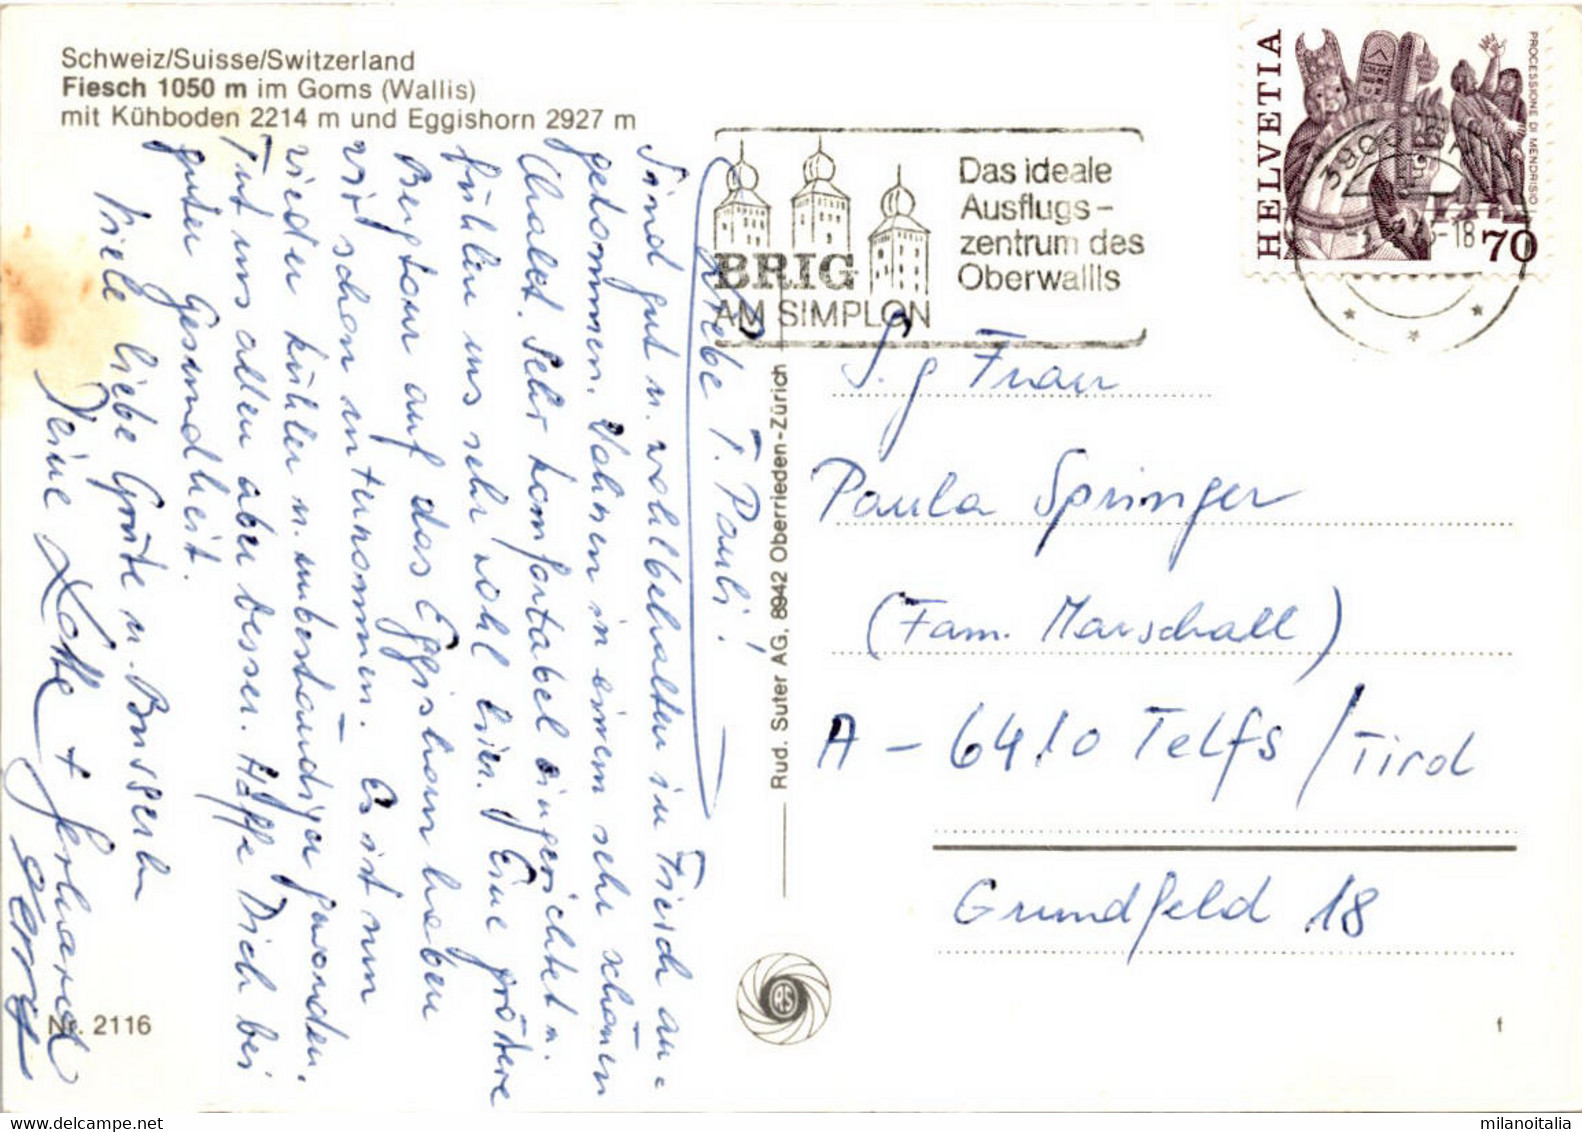 Schweiz/Suisse/Switzerland
Fiesch 1050 m im Goms (Wallis)
mit Kühboden 2214 m und Eggishorn 2927 m
BRIG
AM SIMPLON
Das ideale
Ausflugs-
zentrum des
Oberwallis
HELVETIA
PROCESSIONE DI MENDRISIO
70
3900
-18
Liebe T. Pauli!
Sind gut u. wohlbehalten in Fiesch an-
gekommen. Wohnen in einem sehr schönen
Chalet. Sehr komfortabel eingerichtet u.
fühlen uns sehr wohl hier. Eine größere
Bergtour auf das Eggishorn haben
wir schon unternommen. Es ist nun
wieder kühler u. unbeständiger geworden.
Tut uns allen aber besser. Hoffe Dich bei
guter Gesundheit.
Viele liebe Grüße u. Busserln
Deine Lotte + Gerhard
Gerry
S.g Frau
Paula Springer
(Fam. Marschall)
A-6410 Telfs/Tirol
Grundfeld 18
Rud. Suter AG, 8942 Oberrieden-Zürich
RS
Nr. 2116
f
milanoitalia